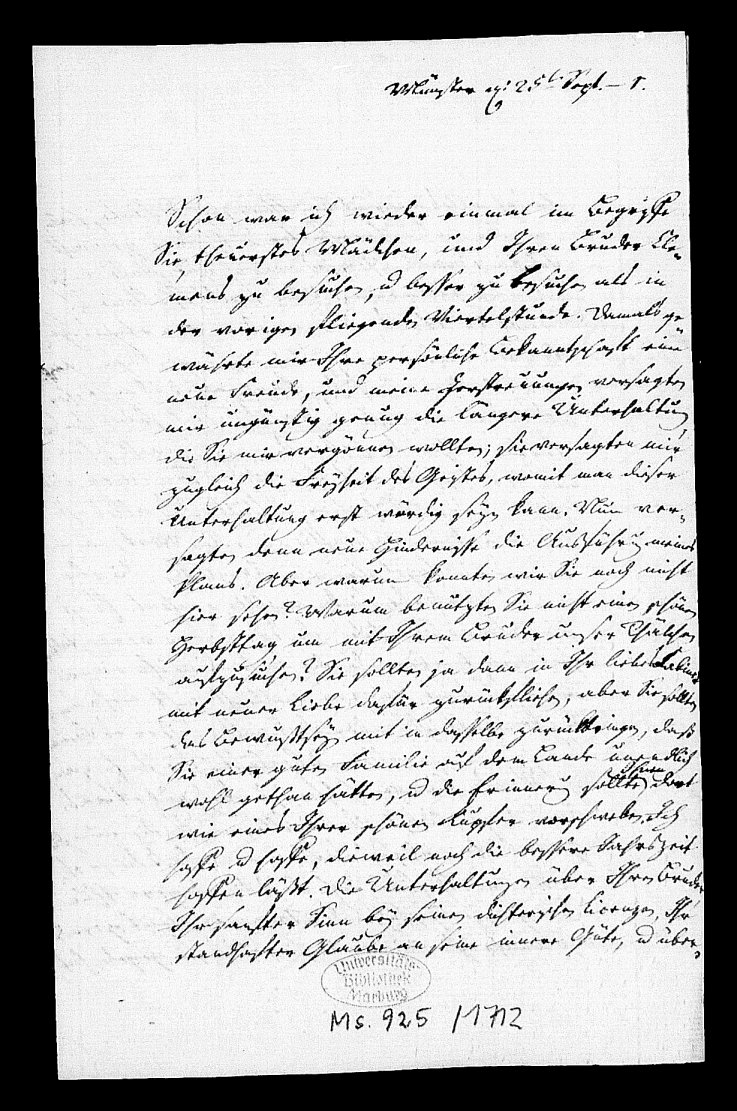 Münster d. 25t Sept. – 1.
Schon war ich wieder einmal im Begriffe
Sie, theuerstes Mädchen, und Ihren Bruder Cle-
mens zu besuchen, u besser zu besuchen als in
der vorigen fliegenden Viertelstunde. Damals ge
währte mir Ihre persönliche Bekanntschaft eine
neue Freude, und meine Zerstreuungen versagten
mir ungünstig genug die längere Unterhaltung
die Sie mir vergönnen wollten; sie versagten mir
zugleich die Freyheit des Geistes, womit man dieser
Unterhaltung erst würdig seyn kann. Nun ver-
sagten denn neue Hindernisse die Ausführung meines
Plans. Aber warum konnten wir Sie noch nicht
hier sehen? Warum benützten Sie nicht einen schönen
Herbsttag um mit Ihrem Bruder unser Thälchen
aufzusuchen? Sie sollten ja dann in Ihr liebes Kabinet
mit neuer Liebe dafür zurückfliehen, aber Sie sollten
das Bewußtseyn mit in dasselbe zurückbringen, daß
Sie einer guten Familie auf dem Lande unendlich
wohl gethan hätten, u die Erinnerung sollte Ihnen dort
wie eines Ihrer schönen Kupfer vorschweben. Ich
hoffe u hoffe, dieweil noch die bessere Jahrszeit
hoffen läßt. Die Unterhaltungen über Ihren Bruder
Ihr sanfter Sinn bey seinen dichterischen Licenzen, Ihr
standhafter Glaube an seine innere Güte, u über-
Universitäts-
Bibliothek
Marburg
Ms. 925 /1712